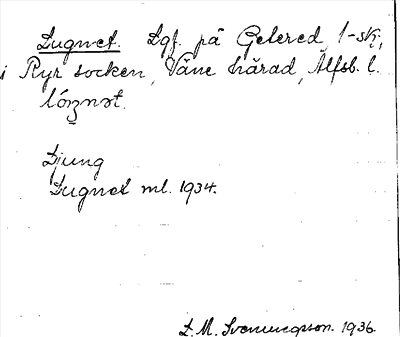 Lugnet. Lgf. på Gelered, 1-sk.,
i Ryr socken, Väne härad, Älfsb. l.
Ljung
Lugnet ml. 1934.
L. M. Svenungsson. 1936.